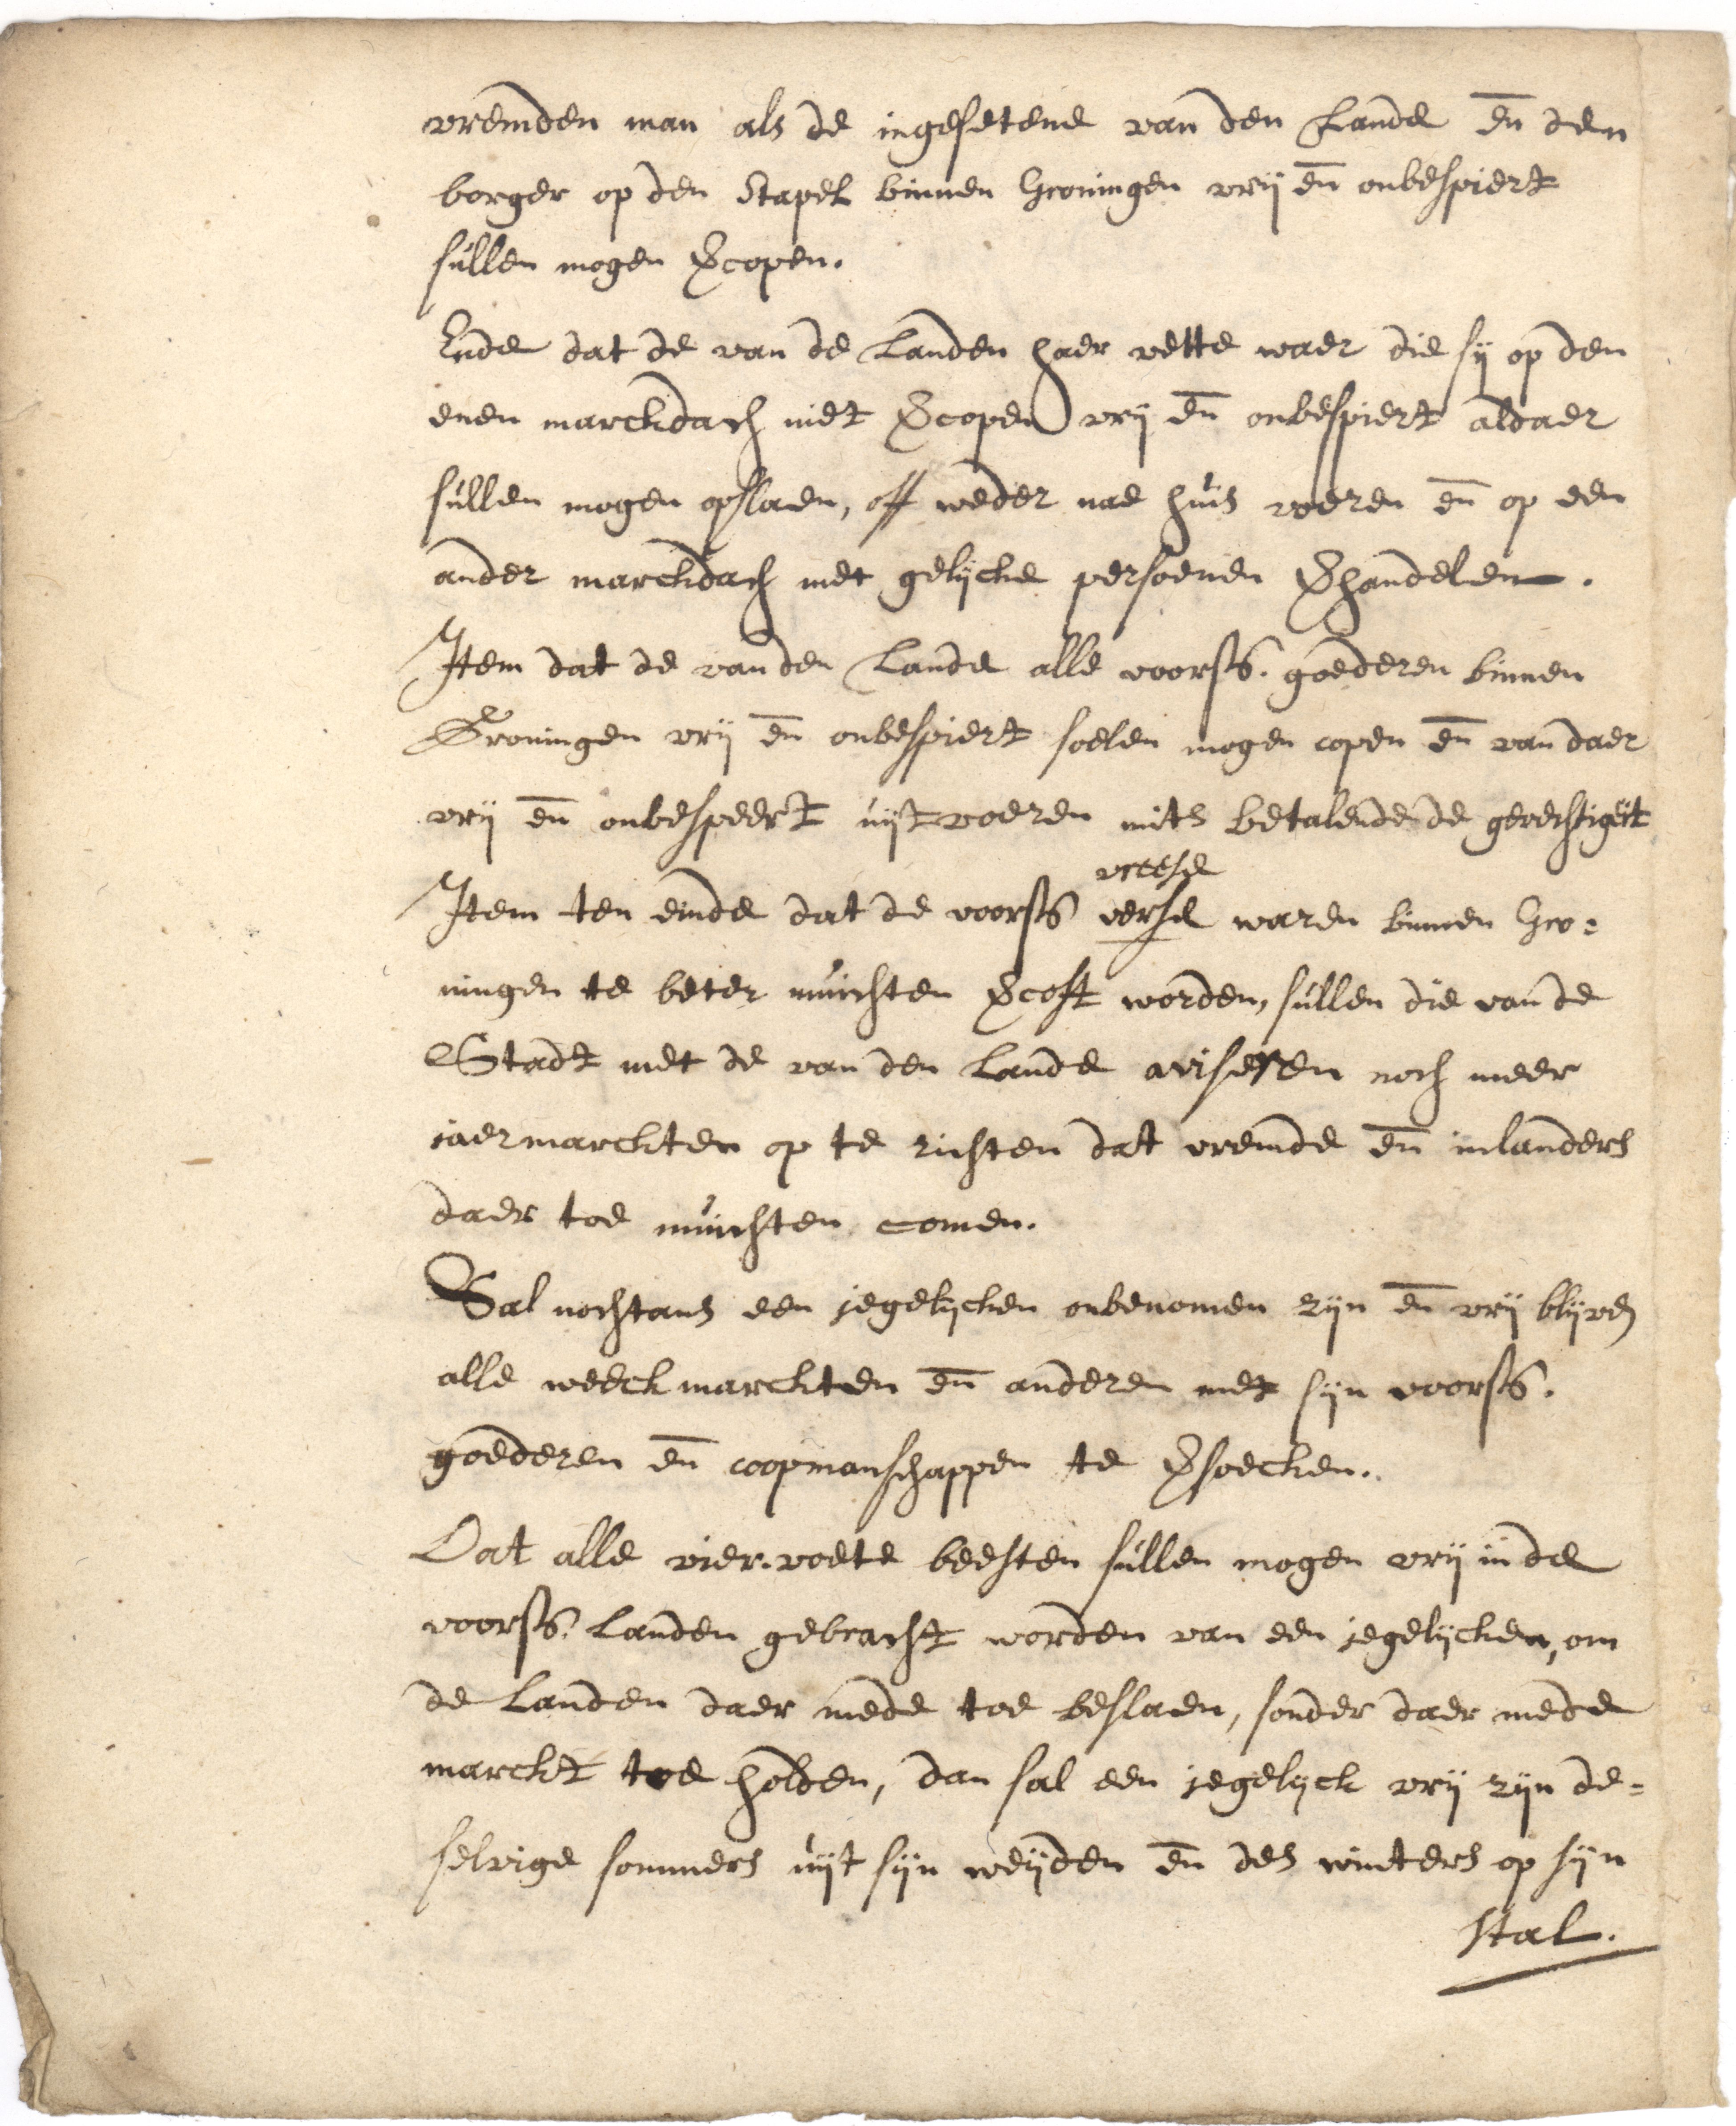 vremden man als de ingesetene van den Lande en̄ den
borger op den Stapel binnen Groningen vrij en̄ onbespiert
sullen mogen vercopen.
Ende dat de van de Landen haer vette waer die sij op den
enen marckdach niet vercopen vrij en̄ onbespiert aldaer
sullen mogen opslaen, off weder nae huis voeren en̄ op een
ander marckdach met gelijcke persoenen verhandelen.
Item dat de van den Lande alle voorss. goederen binnen
Groningen vrij en̄ onbespiert soelen mogen copen en̄ van daer
vrij en̄ onbespeert uijtvoeren mits betalende de gerechtigeit
vreese
Item ten einde dat de voorss verse waren binnen Gro=
ningen te beter muchten vercoft worden, sullen die van de
Stadt met de van den Lande aviseren noch meer
jaermarckten op te richten dat vremde en̄ inlanders
daer toe muchten comen.
Sal nochtans een jegelijcken onbenomen zijn en̄ vrij blijven
alle weeckmarckten en̄ anderen met sijn voorss.
goederen en̄ coopmanschappen te versoecken.
Dat alle vier-voete beesten sullen mogen vrij in de
voorss. Landen gebracht worden van een jegelijcken, om
de Landen daer mede toe beslaen, sonder daer mede
marckt toe holden, dan sal een jegelijck vrij zijn de=
selvige sommers uijt sijn weijden en̄ des winters op sijn
stal.